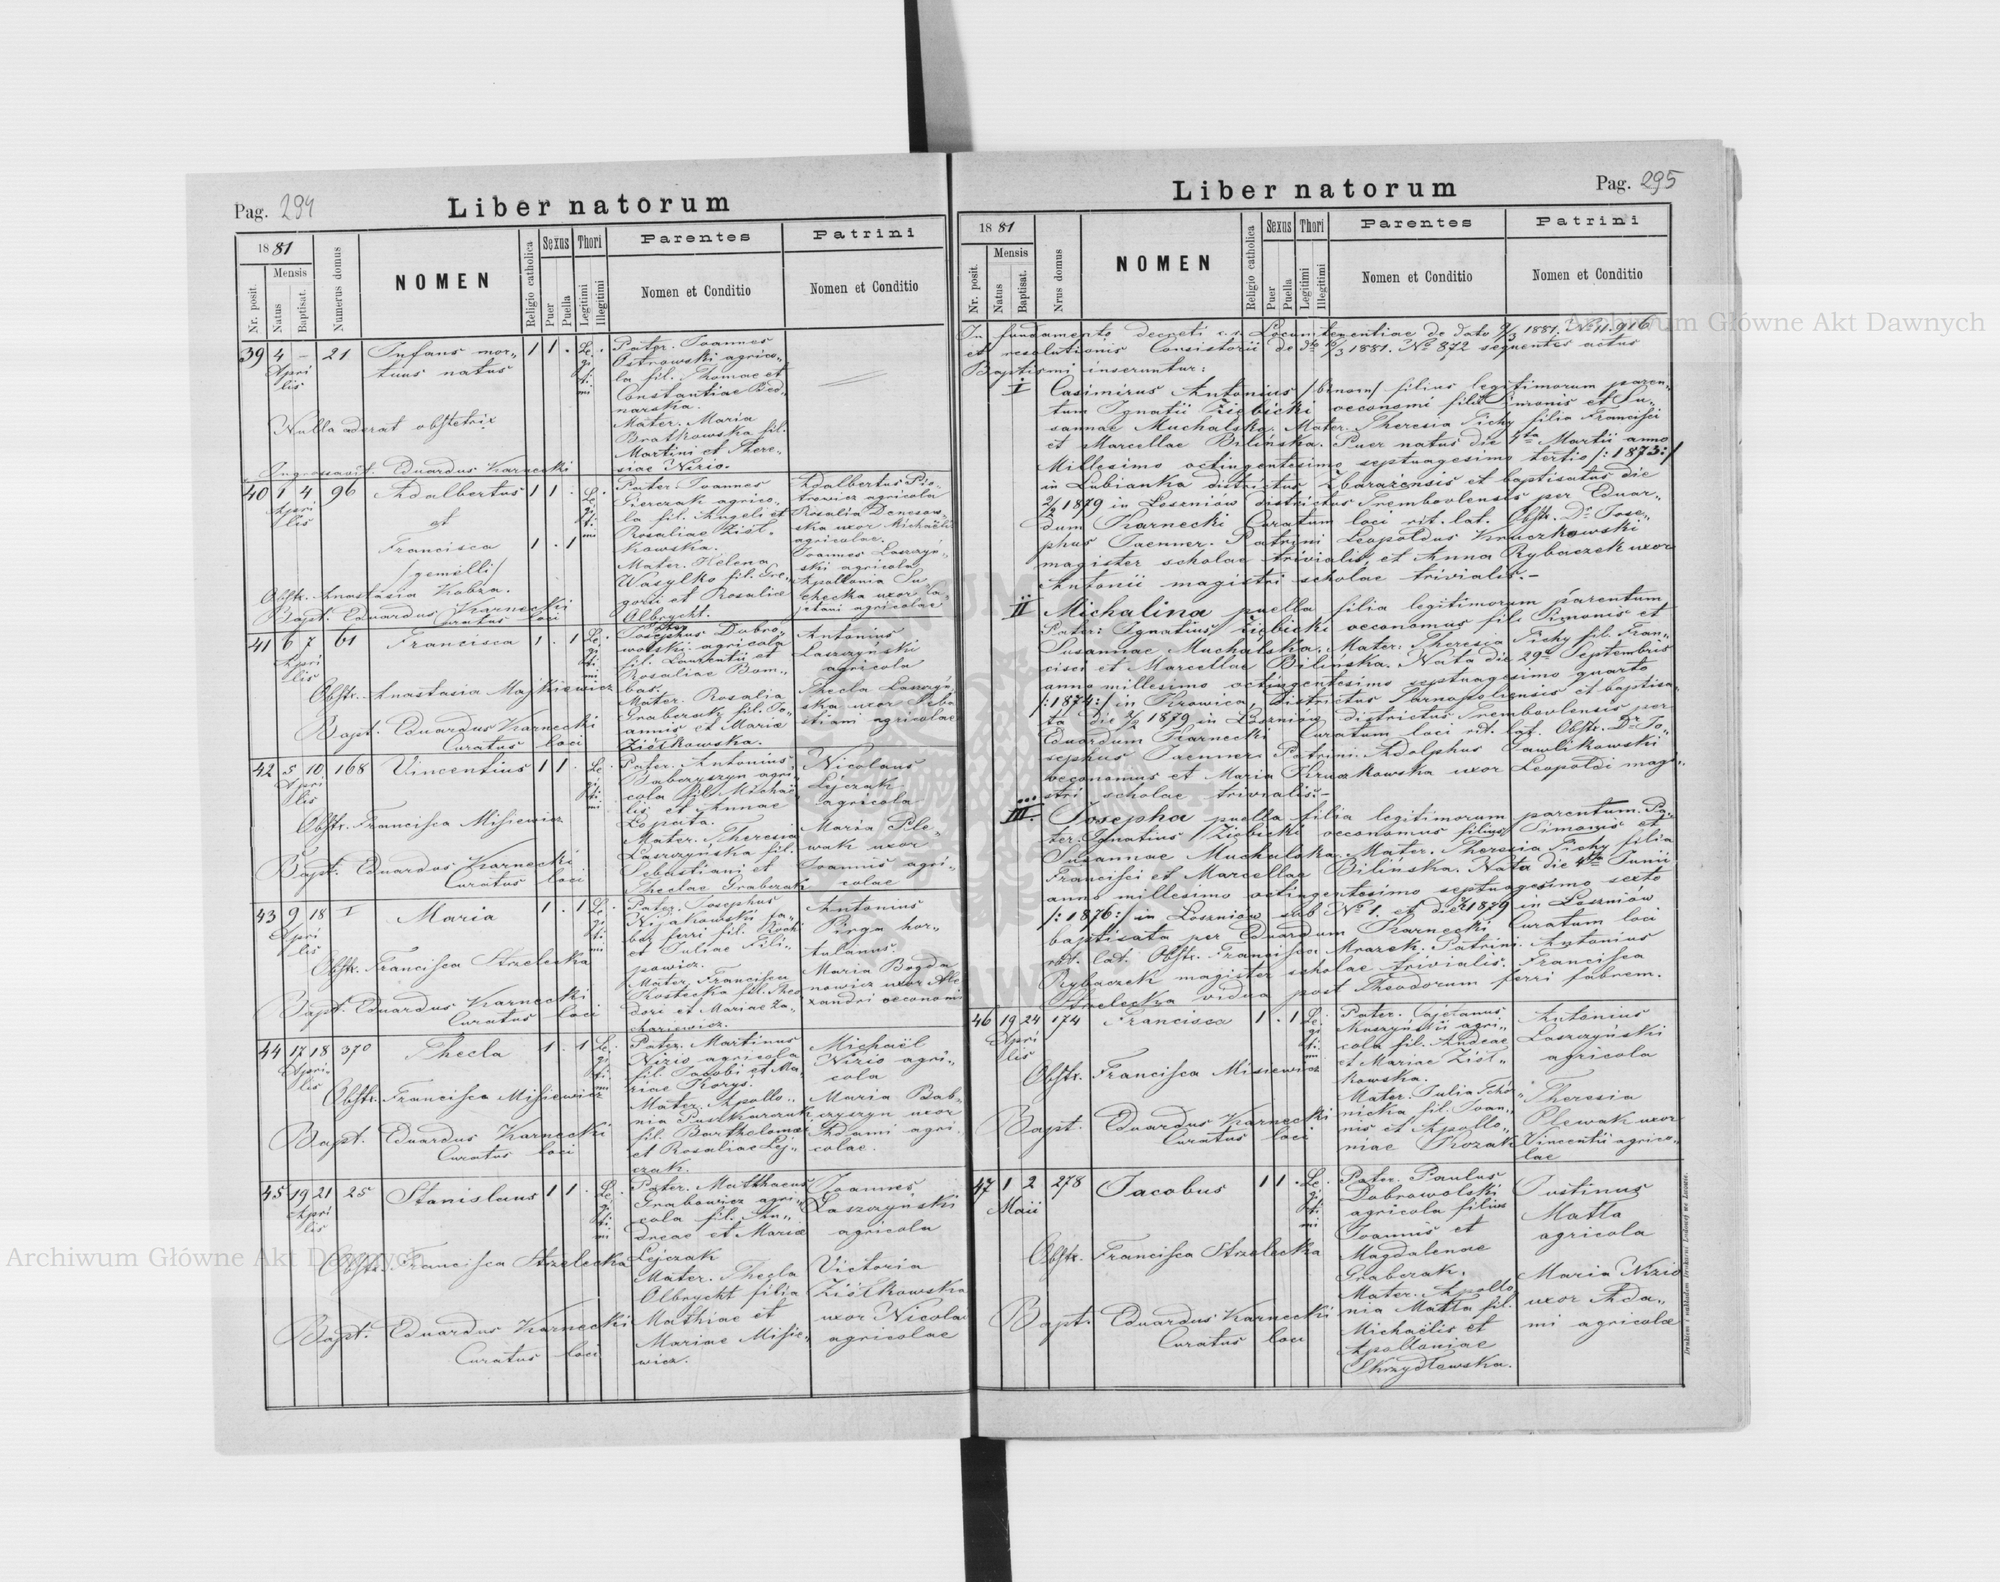 Pag. 294
Liber natorum
1881
Nr. posit.
Mensis
Natus
Baptisat.
Numerus domus
NOMEN
Religio catholica
Sexus
Puer
Puella
Thori
Legitimi
Illegitimi
Parentes
Nomen et Conditio
Patrini
Nomen et Conditio
39 4 – 21 Infans mor-
tuus natus
Apri
lis
1 1 . Le
gi
ti
mi
Pater. Joannes
Ostrowski agrico-
la fil. Thomae et
Constantiae Bed-
narska.
Mater. Maria
Bratkowska fil.
Martini et There-
siae Nizio.
Nulla aderat obstetrix
Ingrossavit. Eduardus Karnecki
40 1 4 96 Adalbertus 1 1 .
Apri
lis
et
Francisca 1 . 1
/gemelli/
Le
gi
ti
mi
Pater Joannes
agrico-
la fil. Angeli et
Rosaliae Ziół-
kowska.
Mater. Helena
Wasylko fil. Gre-
gorii et Rosaliae
Olbrycht.
Adalbertus Pio-
trowicz agricola
Rosalia
ska uxor Michaëlis
agricolae.
Joannes Laszczyń-
ski agricola
Apollonia Su
checka uxor Ca-
jetani agricolae
Obstr. Anastasia Kobza.
Bapt. Eduardus Karnecki
Curatus loci
41 6 7 61 Francisca 1 . 1
Apri
lis
Le
gi
ti
mi
Pater
Josephus Dobro-
wolski agricola
fil. Laurentii et
Rosaliae Bom-
bas.
Mater. Rosalia
Graberak fil. Jo-
annis et Mariae
Ziółkowska.
Antonius
Laszczyński
agricola
Thecla Laszczyń-
ska uxor Seba
stiani agricolae
Obstr. Anastasia Majkiewicz
Bapt. Eduardus Karnecki
Curatus loci
42 5 10 168 Vincentius 1 1 .
Apri
lis
Le
gi
ti
mi
Pater. Antonius
Babczyszyn agri-
cola fil. Michaë-
lis et Annae
Łopata.
Mater. Theresia
Laszczyńska fil.
Sebastiani et
Theclae Graberak
Nicolaus
Lejczak
agricola
Maria Ple-
wak uxor
Joannis agri-
colae
Obstr. Francisca Misiewicz
Bapt. Eduardus Karnecki
Curatus loci
43 9 18 I Maria 1 . 1
Apri
lis
Le
gi
ti
mi
Pater. Josephus
Nijakowski fa-
ber ferri fil. Rochi
et Juliae Fili-
powicz.
Mater Francisca
Kostecka fil. Theo
dori et Mariae Za-
chariewicz.
Antonius
Pirga hor-
tulanus.
Maria Bogda
nowicz uxor Ale
xandri oeconomi
Obstr. Francisca Strzelecka
Bapt. Eduardus Karnecki
Curatus loci
44 17 18 370 Thecla 1 . 1
Apri
lis
Le
gi
ti
mi
Pater. Martinus
Nizio agricola
fil. Jacobi et Ma-
riae Korys.
Mater. Apollo-
nia Pastkarczuk
fil. Bartholomaei
et Rosaliae Lej-
czak.
Michaël
Nizio agri-
cola
Maria Bab-
czyszyn uxor
Adami agri-
colae.
Obstr. Francisca Misiewicz
Bapt. Eduardus Karnecki
Curatus loci
45 19 21 25 Stanislaus 1 1 .
Apri
lis
Le
gi
ti
mi
Pater. Matthaeus
Grabowicz agri-
cola fil. An-
dreae et Mariae
Lejczak
Mater. Thecla
Olbrycht filia
Mathiae et
Mariae Misie-
wicz.
Joannes
Laszczyński
agricola
Victoria
Ziółkowska
uxor Nicolai
agricolae
Obstr. Francisca Strzelecka
Bapt. Eduardus Karnecki
Curatus loci
Pag. 295
Liber natorum
1881
Nr. posit.
Mensis
Natus
Baptisat.
Nrus domus
NOMEN
Religio catholica
Sexus
Puer
Puella
Thori
Legitimi
Illegitimi
Parentes
Nomen et Conditio
Patrini
Nomen et Conditio
In fundamento decreti c.r. Locumtenentiae de dato 9/3 1881. No 11.916
et resolutionis Consistorii de dto /3 1881. No 872 sequentes actus
Baptismi inseruntur:
I Casimirus Antonius /binom/ filius legitimorum paren-
tum Ignatii Ziębicki oeconomi filii Simonis et Su-
sannae Muchalska. Mater. Theresia Tichy filia Francisci
et Marcellae Bilińska. Puer natus die 4ta Martii anno
Millesimo octingentesimo septuagesimo tertio /:1873:/
in Lubianka districtus Zbarażensis et baptisatus die
2/2 1879 in Łoszniów districtus Trembovlensis per Eduar-
dum Karnecki Curatum loci rit. lat. Obstr. Dr. Jose-
phus Taenner. Patrini Leopoldus Kruczkowski
magister scholae trivialis, et Anna Rybaczek uxor
Antonii magistri scholae trivialis.-
II Michalina puella filia legitimorum parentum
Pater: Ignatius Ziębicki oeconomus fil. Simonis et
Susannae Muchalska. Mater: Theresia Tichy fil. Fran-
cisci et Marcellae Bilińska. Nata die 29a Septembris
anno millesimo octingentesimo septuagesimo quarto
/:1874:/ in Krowica, districtus Tarnopoliensis et baptisa-
ta die 2/2 1879 in Łoszniów districtus Trembovlensis per
Eduardum Karnecki Curatum loci rit. lat. Obstr. Dr. Jo-
sephus Taenner. Patrini. Adolphus Gawlikowski
oeconomus et Maria uxor Leopoldi magi-
stri scholae trivialis.-
III Josepha puella filia legitimorum parentum. Pa-
ter. Ignatius Ziębicki oeconomus filius Simonis et
Susannae Muchalska. Mater. Theresia Tichy filia
Francisci et Marcellae Bilińska. Nata die 4ta Junii
anno millesimo octingentesimo septuagesimo sexto
/:1876:/ in Łoszniów sub No 1. et die 2/2 1879 in Łoszniów
baptisata per Eduardum Karnecki Curatum loci
rit. lat. Obstr. Francisca Mrazek. Patrini. Antonius
Rybaczek magister scholae trivialis. Francisca
Strzelecka vidua post Theodorum ferri fabrem.
46 19 24 174 Francisca 1 . 1
Apri
lis
Le
gi
ti
mi
Pater. Cajetanus
Muszyński agri-
cola fil. Andreae
et Mariae Ziół-
kowska.
Mater. Julia Tchó-
nicka fil. Joan-
nis et Apollo-
niae Kozak
Antonius
Laszczyński
agricola
Theresia
Plewak uxor
Vincentii agrico-
lae
Obstr. Francisca Misiewicz
Bapt. Eduardus Karnecki
Curatus loci
47 1 2 278 Jacobus 1 1 .
Maii
Le
gi
ti
mi
Pater. Paulus
Dobrowolski
agricola filius
Joannis et
Magdalenae
Graberak.
Mater. Apollo
nia Matla fil.
Michaëlis et
Apolloniae
Skrzydlewska.
Justinus
Matla
agricola
Maria Nizio
uxor Ada-
mi agricolae
Obstr. Francisca Strzelecka
Bapt. Eduardus Karnecki
Curatus loci
Archiwum Główne Akt Dawnych
Archiwum Główne Akt Dawnych